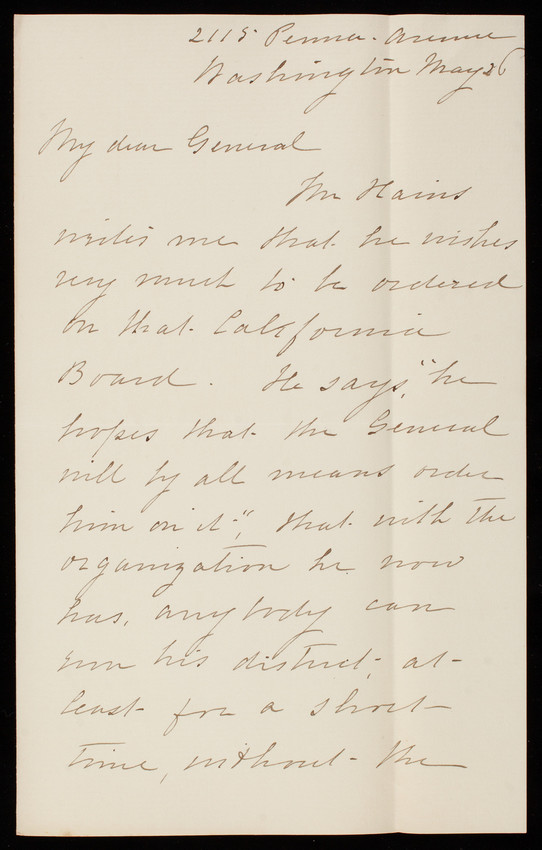 2115 Penna. Avenue
Washington May 26
My dear General
Mr Hains
writes me that he wishes
very much to be ordered
on that California
Board. He says, "he
hopes that the General
will by all means order
him on it", that with the
organization he now
has, anybody can
run his district, at-
least for a short
time, without the